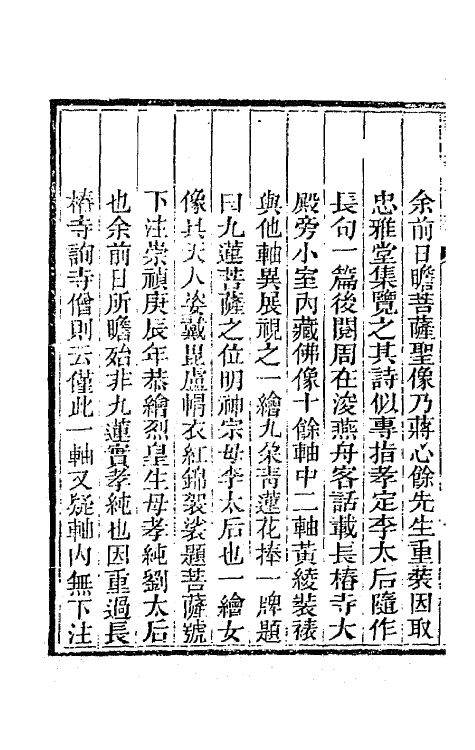 余前日瞻菩薩聖像乃蔣心餘先生重裝因取
忠雅堂集覽之其詩似專指孝定李太后隨作
長句一篇後閱周在浚燕舟客話載長椿寺大
殿旁小室內藏佛像十餘軸中二軸黃綾裝裱
與他軸異展視之一繪九朶靑蓮花捧一牌題
曰九蓮菩薩之位明神宗母李太后也一繪女
像具天人姿戴毘盧帽衣紅錦袈裟題菩薩號
下注崇禎庚辰年恭繪烈皇生母孝純劉太后
也余前日所瞻始非九蓮實孝純也因重過長
椿寺詢寺僧則云僅此一軸又疑軸內無下注